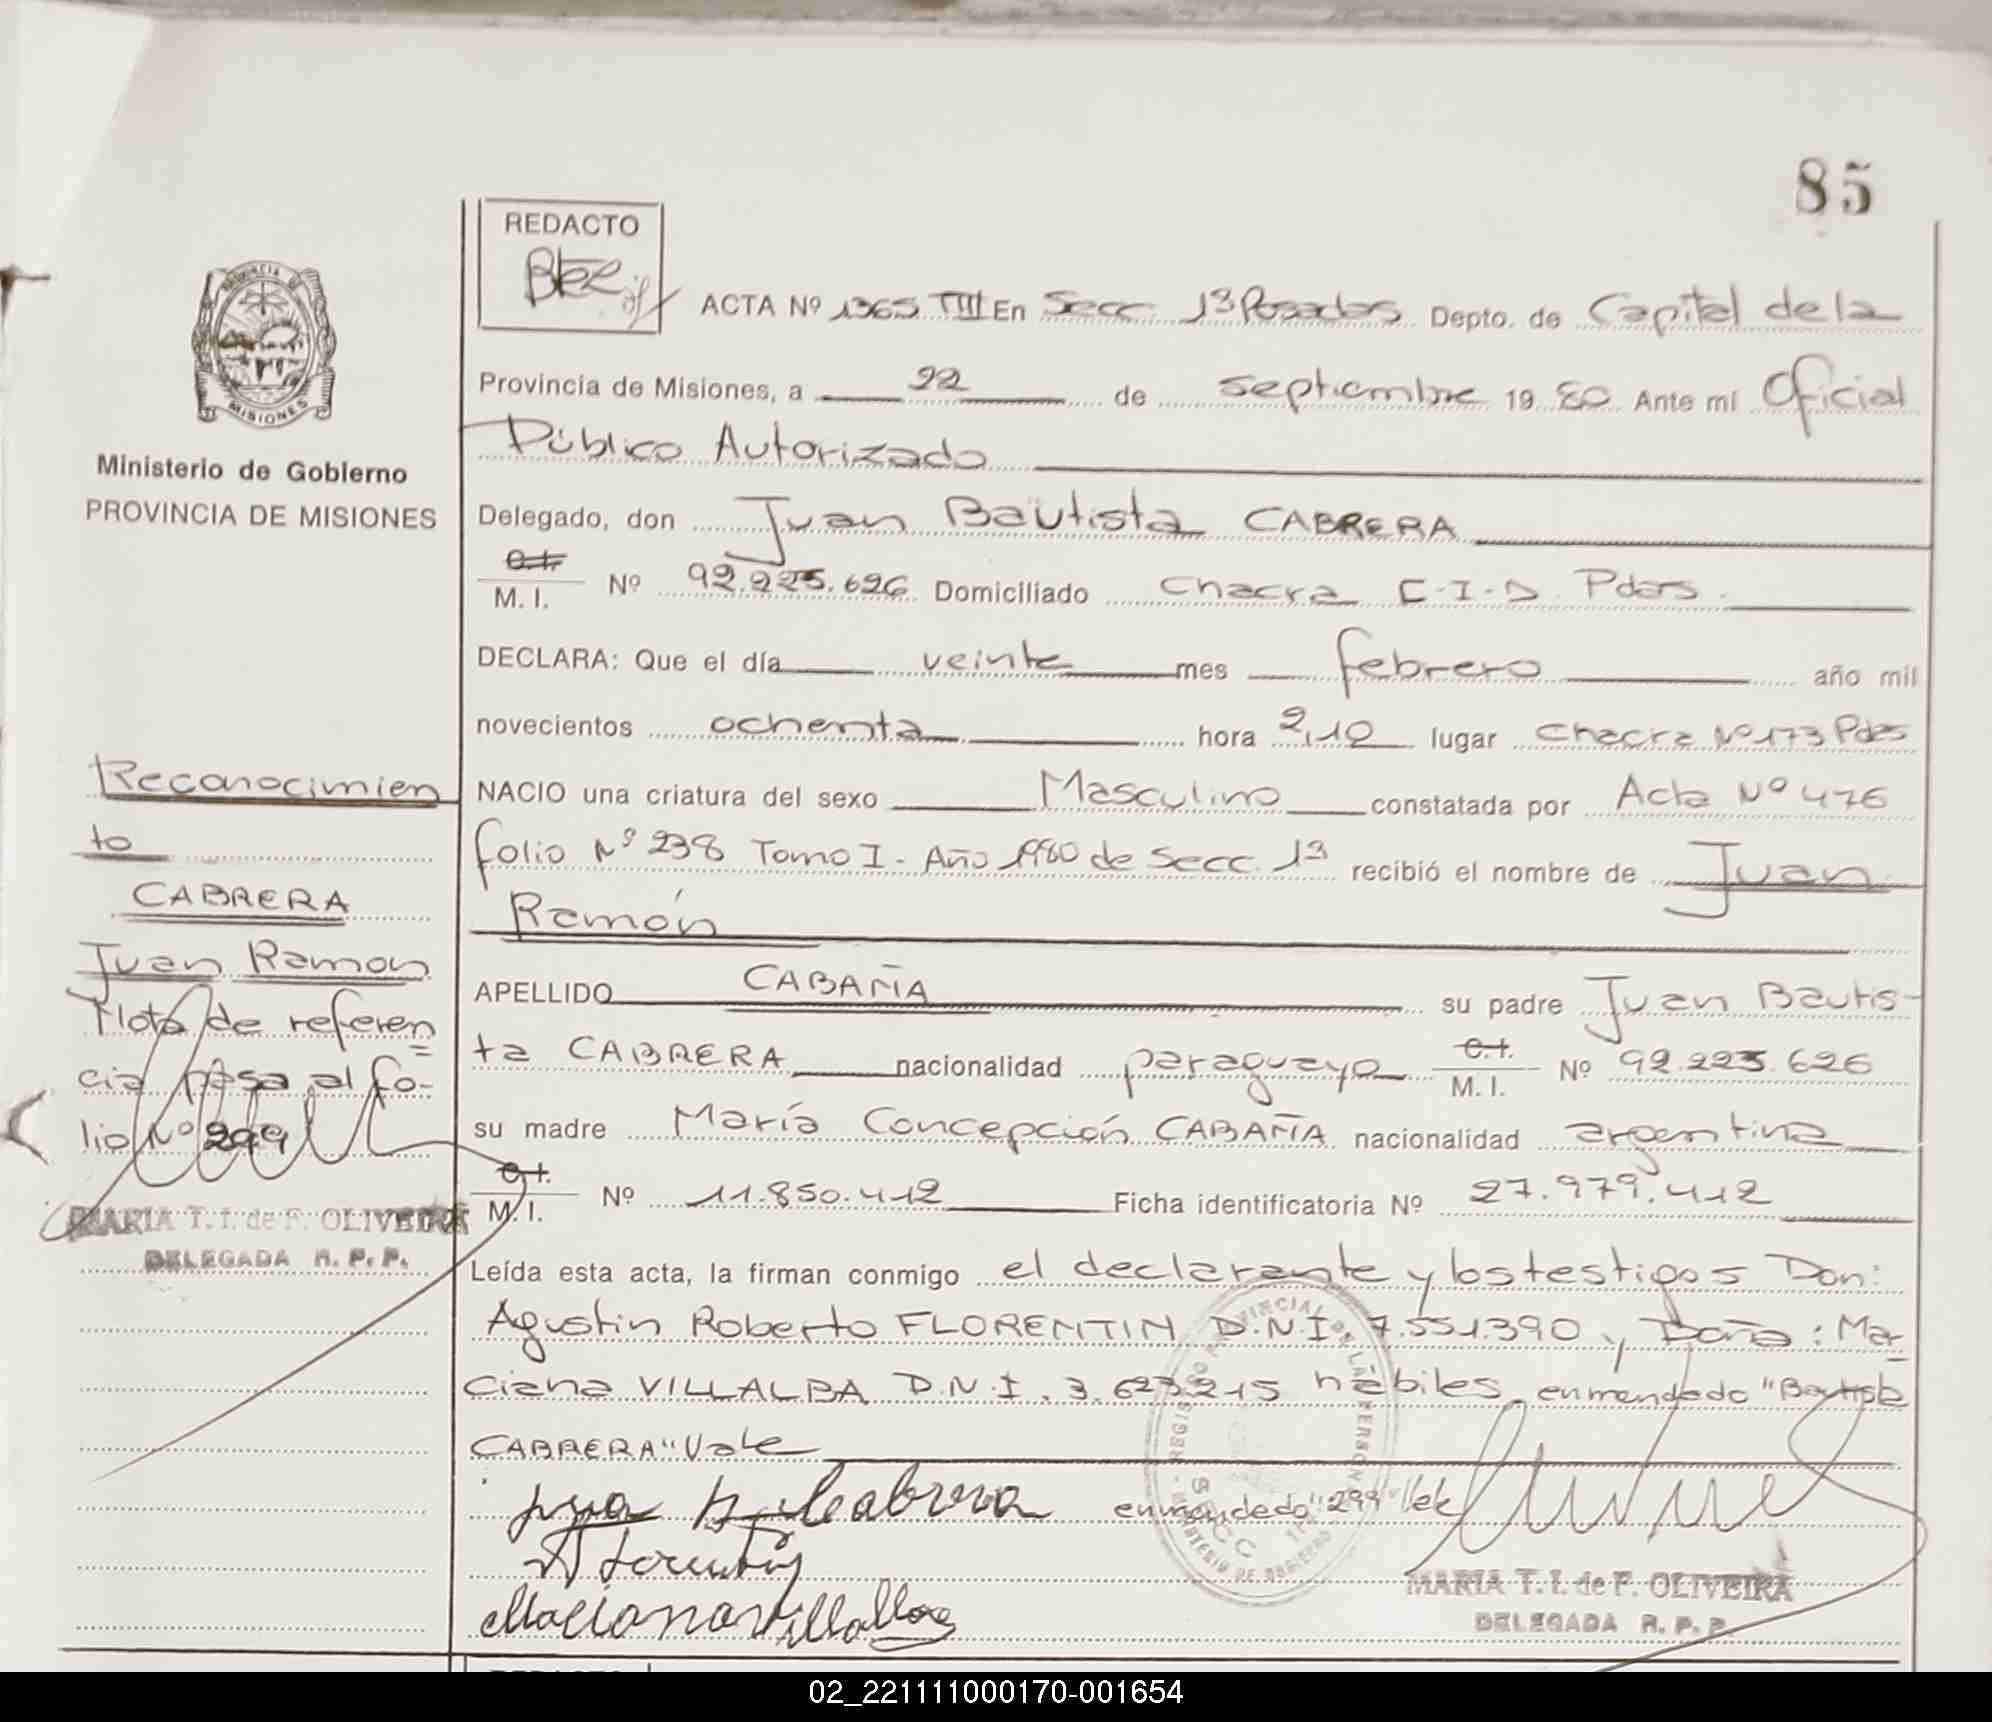 85
REDACTO
ACTA Nº 1365 TIII En Secc. 1ª Posadas Depto. de Capital de la
Provincia de Misiones, a 22 de septiembre 19 80 Ante mi Oficial
Público Autorizado
MISIONES
Ministerio de Gobierno
PROVINCIA DE MISIONES
Delegado, don Juan Bautista CABRERA
C.I.
M. I. Nº 92.225.626 Domiciliado Chacra C.I.D. Pdas.
DECLARA: Que el día veinte mes febrero año mil
novecientos ochenta hora 2,10 lugar Chacra Nº 173 Pdas
NACIO una criatura del sexo Masculino constatada por Acta Nº 476
folio Nº 238 Tomo I - Año 1980 de Secc. 1ª recibió el nombre de Juan
Ramón
APELLIDO CABAÑA su padre Juan Bautis-
ta CABRERA nacionalidad paraguaya C.I. M. I. Nº 92.225.626
su madre María Concepción CABAÑA nacionalidad argentina
C.I.
M. I. Nº 11.850.412 Ficha identificatoria Nº 27.979.412
Leída esta acta, la firman conmigo el declarante y los testigos Don:
Agustin Roberto FLORENTIN D.N.I. 7.551.390 y Doña: Mar-
ciana VILLALBA D.N.I. 3.623.215 hábiles, enmendado "Bautista
CABRERA" Vale
enmendado "299" Vale
Reconocimien
to
CABRERA
Juan Ramon
Nota de referen
cia pasa al fo-
lio Nº 299
MARIA T. I. de F. OLIVEIRA
DELEGADA R. P. P.
Juan B. Cabrera
A Florentin
Marciana Villalba
MARIA T. I. de F. OLIVEIRA
DELEGADA R. P. P.
02_221111000170-001654